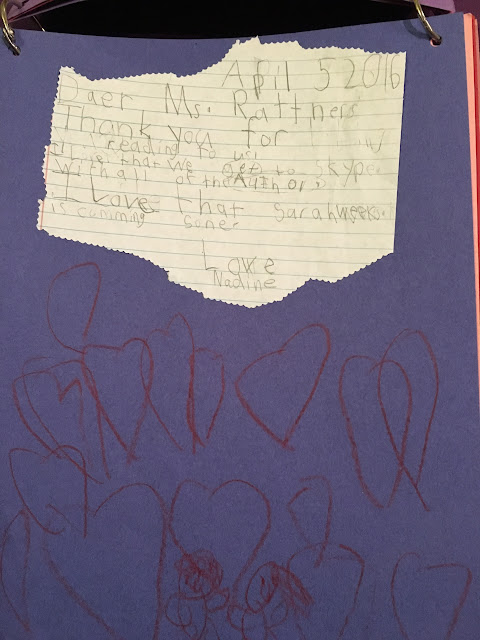 April 5 2016
Daer Ms. Rattner's
Thank you for
reading to us!
that we get to Skype
with all of the Author's
I Love that Sarah weeks
is cumming soner
Love
Nadine